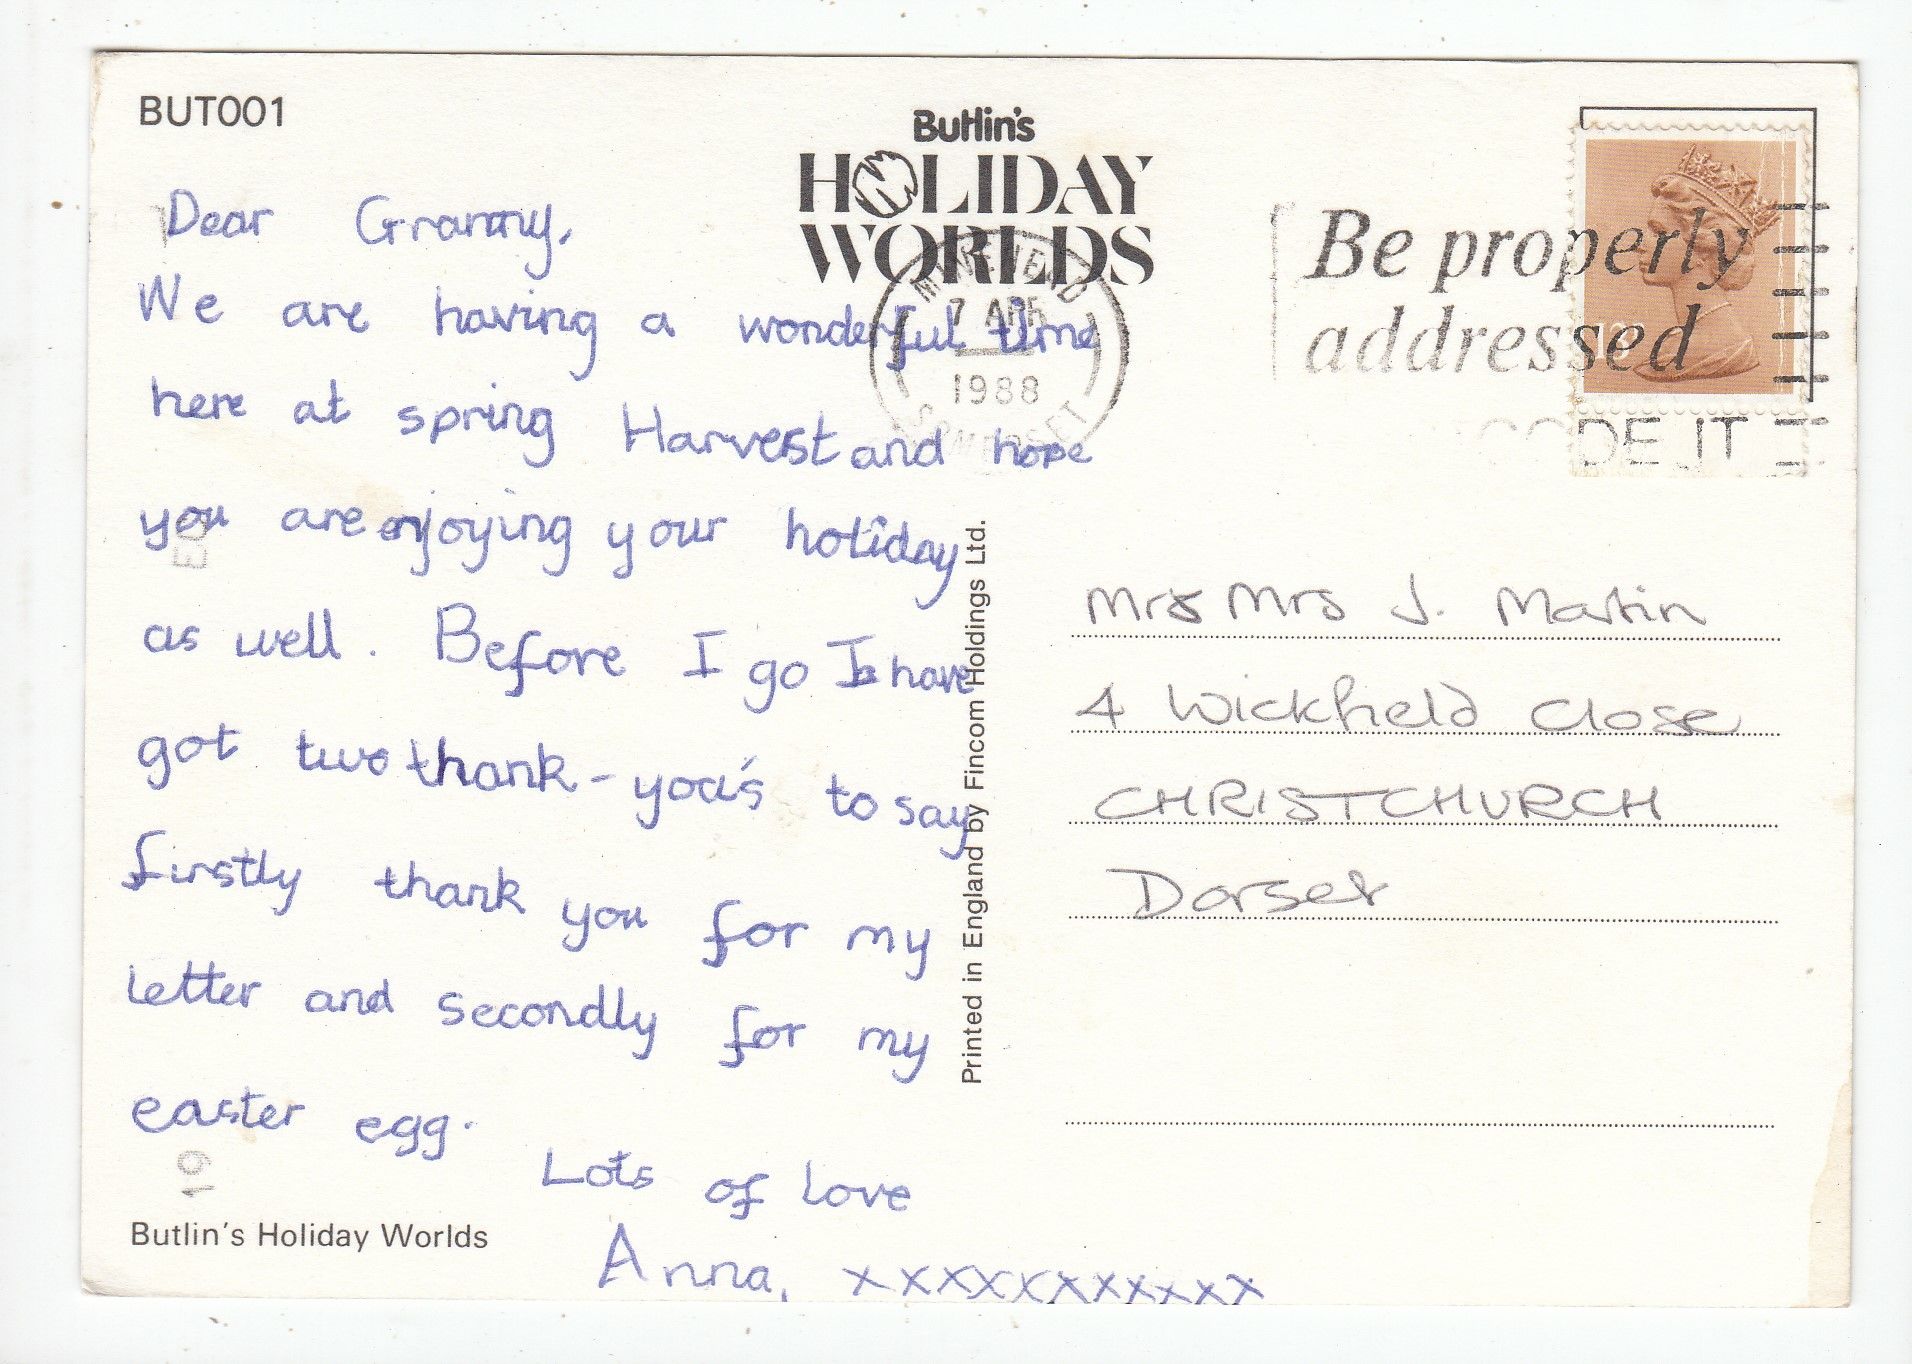 BUT001
Butlin's
HOLIDAY
WORLDS
MINEHEAD
7 APR
1988
SOMERSET
Be properly
addressed
CODE IT
Dear Granny,
We are having a wonderful time
here at spring Harvest and hope
you are enjoying your holiday
as well. Before I go I have
got two thank-you's to say
firstly thank you for my
letter and secondly for my
easter egg.
Lots of love
Anna, xxxxxxxxxxx
Butlin's Holiday Worlds
Printed in England by Fincom Holdings Ltd.
Mrs Mrs J. Martin
4 Wickfield Close
CHRISTCHURCH
Dorset